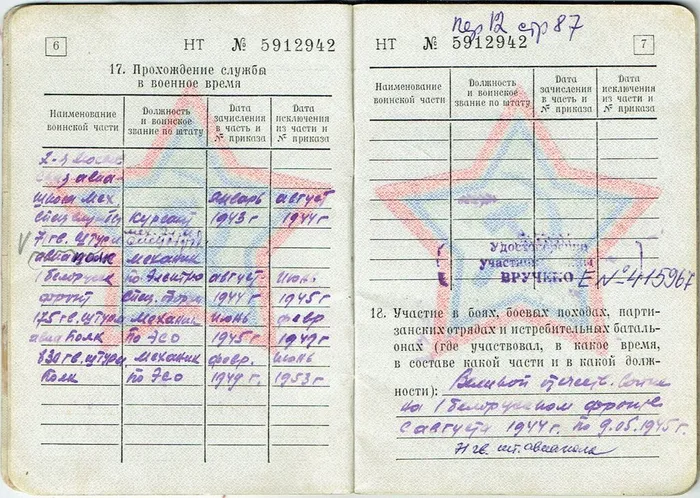 6
НТ № 5912942
17. Прохождение службы
в военное время
Наименование воинской части
Должность и воинское звание по штату
Дата зачисления в часть и № приказа
Дата исключения из части и № приказа
2-я
авиа-
школа мех. январь август
спецслужбы курсант 1943 г 1944 г
7 гв. штурм
авиаполк механик
1 Белорусск по электро август июнь
фронт спец. 1944 г 1945 г
175 гв. штурм механик июнь февр
авиаполк по Эсо 1945 г 1949 г
830 гв. штурм механик февр. июнь
Полк по Эсо 1949 г. 1953 г.
пер 12 стр 87
НТ № 5912942
7
Наименование воинской части
Должность и воинское звание по штату
Дата зачисления в часть и № приказа
Дата исключения из части и № приказа
Удостоверение
участника
ВРУЧЕНО Е №415967
18. Участие в боях, боевых походах, парти-
занских отрядах и истребительных баталь-
онах (где участвовал, в какое время,
в составе какой части и в какой долж-
ности): Великой отечеств. войне
на 1 белорусском фронте
с августа 1944 г. по 9.05.1945 г.
71 гв. шт. авиаполк